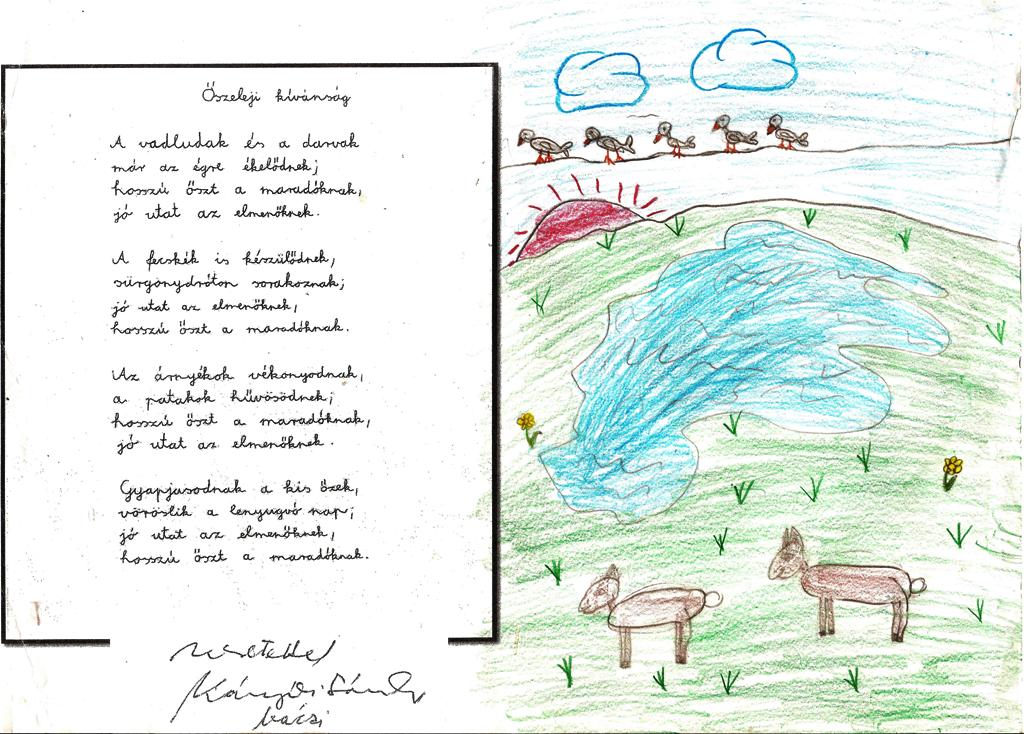 Őszeleji kívánság
A vadludak és a darvak
már az égre ékelődnek;
hosszú őszt a maradóknak,
jó utat az elmenőknek.
A fecskék is készülődnek,
sürgönydróton sorakoznak;
jó utat az elmenőknek,
hosszú őszt a maradóknak.
Az árnyékok vékonyodnak,
a patakok hűvösödnek;
hosszú őszt a maradóknak,
jó utat az elmenőknek.
Gyapjasodnak a kis őzek,
vöröslik a lenyugvó nap;
jó utat az elmenőknek,
hosszú őszt a maradóknak.
szeretettel
Kányádi Sándor
bácsi